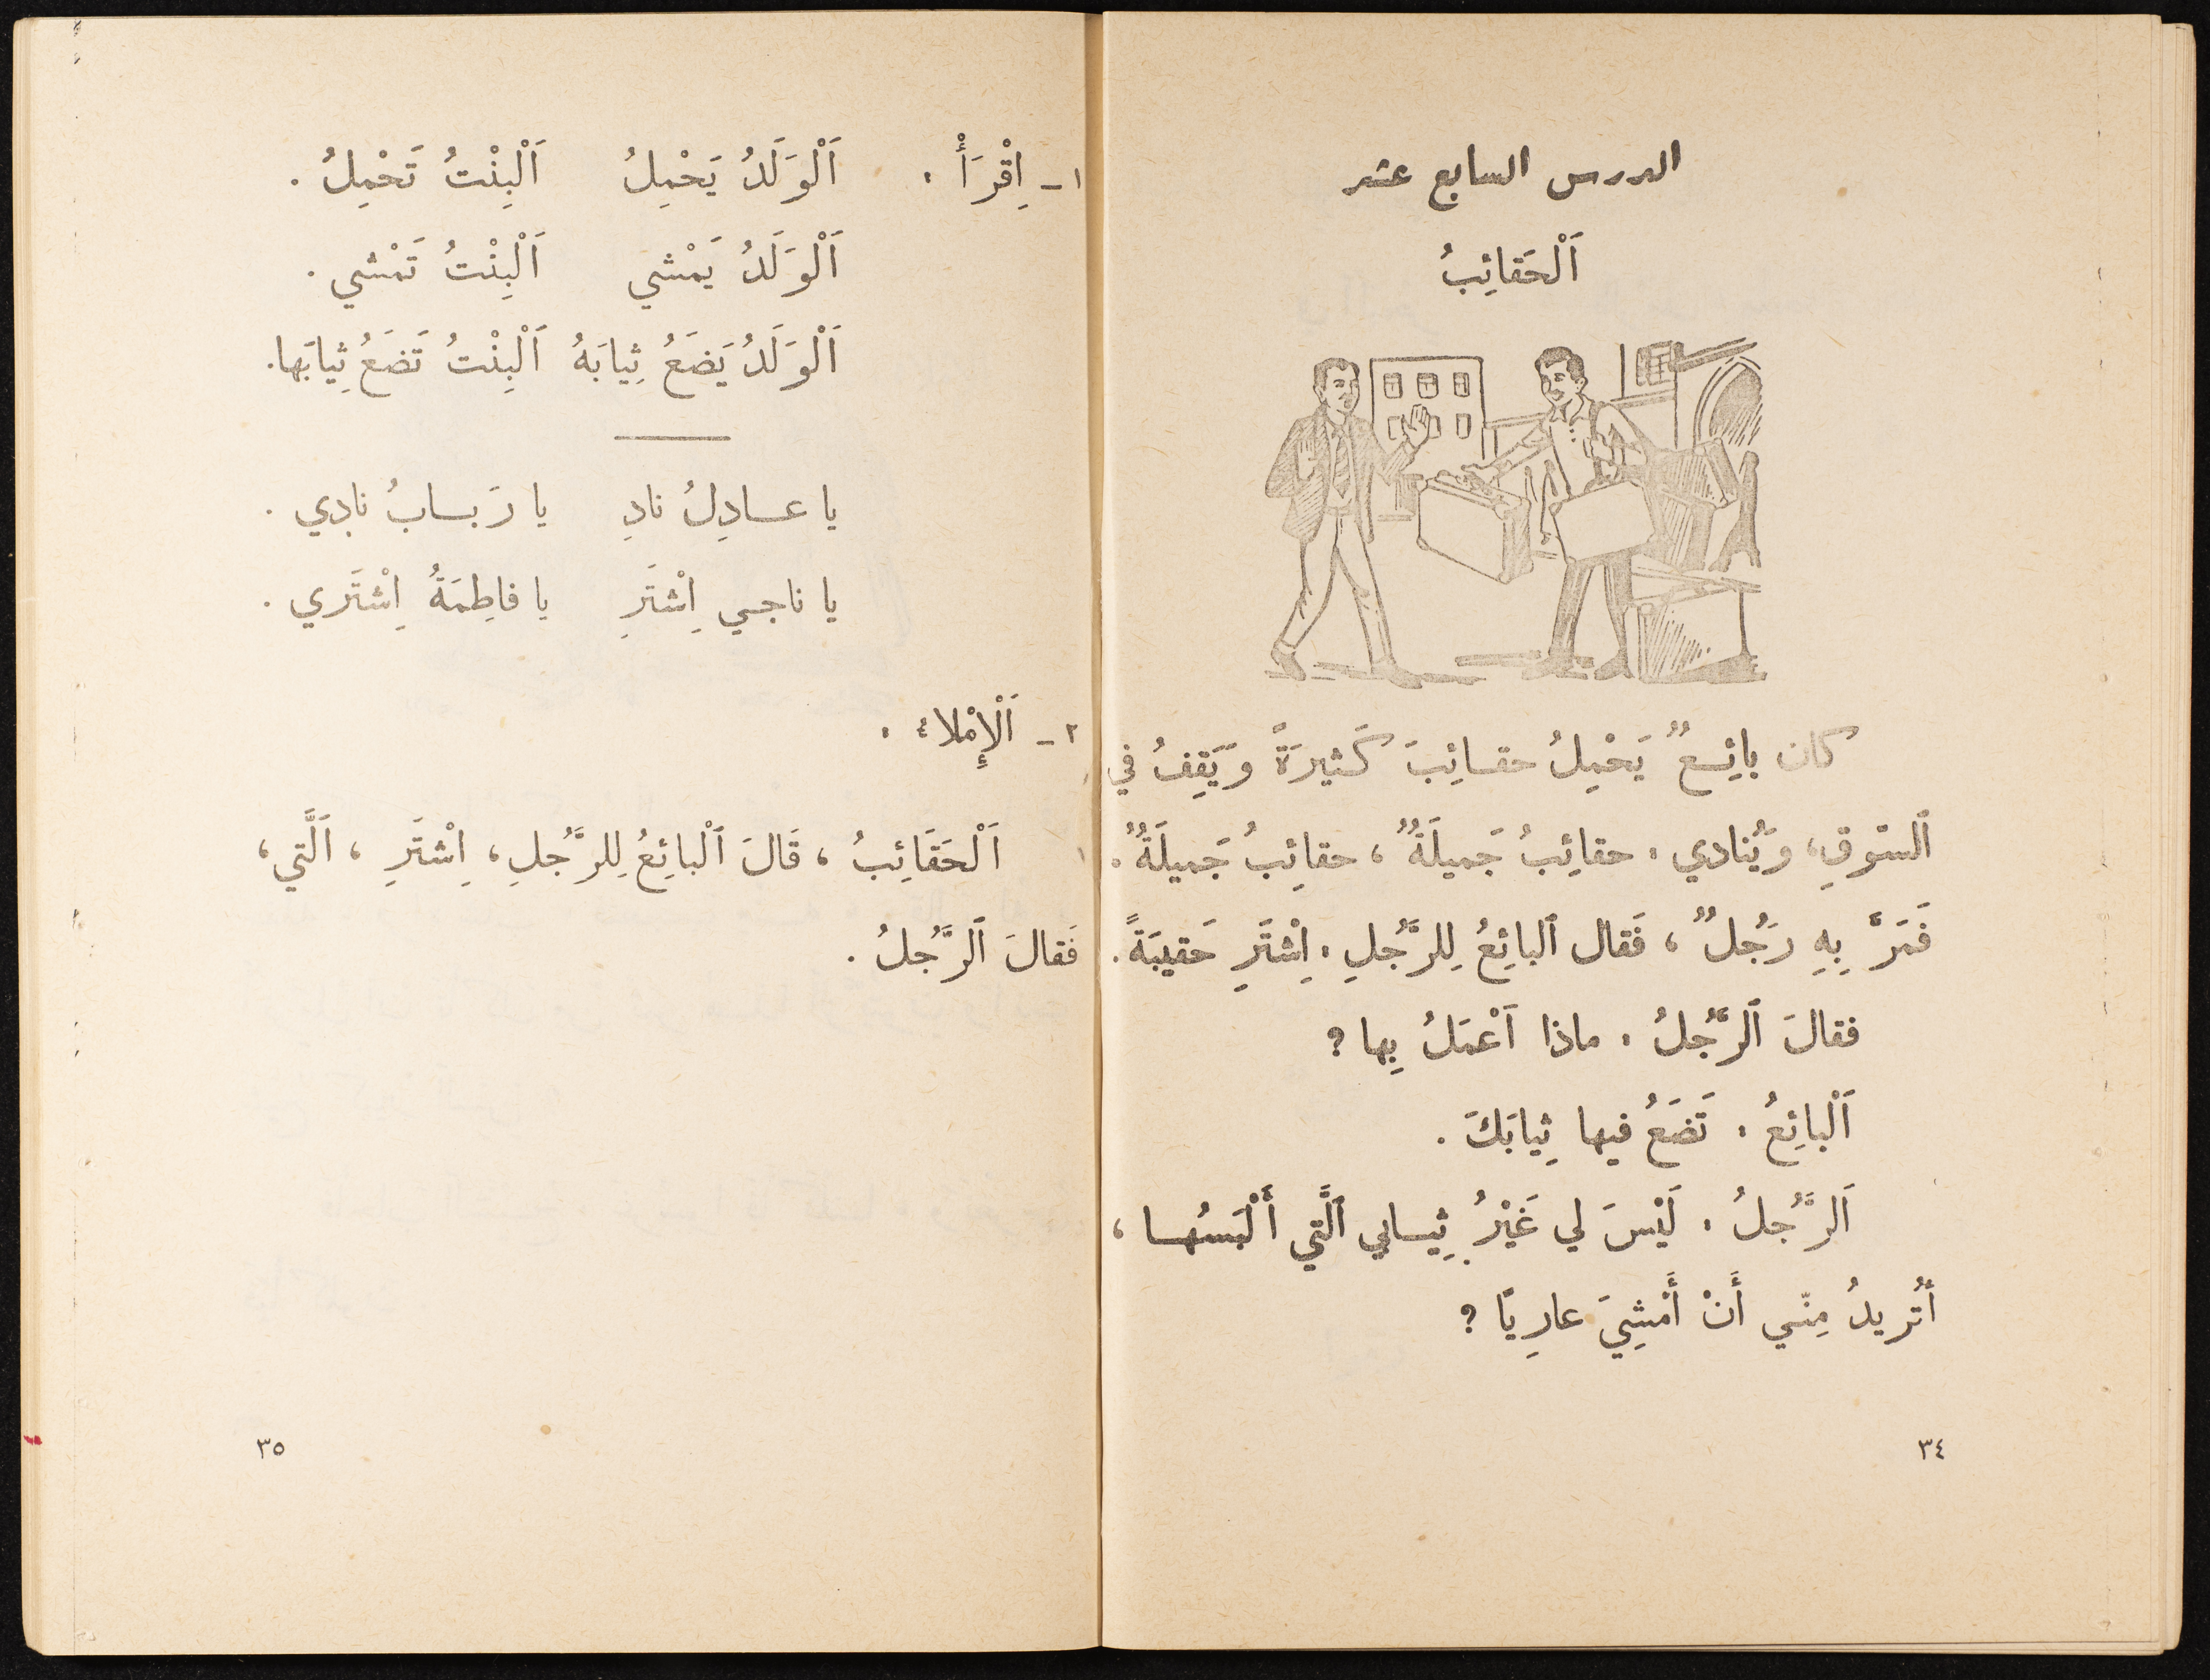 الدرس السابع عشر
اَلْحَقائِبُ
كان بائِعٌ يَحْمِلُ حقائِبَ كَثيرَةً وَيَقِفُ في
اَلسّوقِ، وَيُنادي : حقائِبُ جَميلَةٌ ، حقائِبُ جَميلَةٌ .
فَمَرَّ بِهِ رَجُلٌ ، فَقال اَلبائِعُ لِلرَّجُلِ : اِشْتَرِ حَقيبَةً .
فقالَ اَلرَّجُلُ : ماذا اَعْمَلُ بِها ؟
اَلْبائِعُ : تَضَعُ فيها ثِيابَكَ .
اَلرَّجُلُ : لَيْسَ لي غَيْرُ ثِيابي اَلَّتي أَلْبَسُها ،
أتُريدُ مِنّي أَنْ أَمْشِيَ عارِيًا ؟
٣٤
١ - اِقْرَأْ : اَلْوَلَدُ يَحْمِلُ اَلْبِنْتُ تَحْمِلُ .
اَلْوَلَدُ يَمْشي اَلْبِنْتُ تَمْشي .
اَلْوَلَدُ يَضَعُ ثِيابَهُ اَلْبِنْتُ تَضَعُ ثِيابَها .
يا عادِلُ نادِ يا رَبابُ نادِي .
يا ناجي اِشْتَرِ يا فاطِمَةُ اِشْتَري .
٢ - اَلْإِمْلاء :
اَلْحَقَائِبُ ، قَالَ اَلْبائِعُ لِلرَّجُلِ ، اِشْتَرِ ، اَلَّتي ،
فَقالَ اَلرَّجُلُ .
٣٥